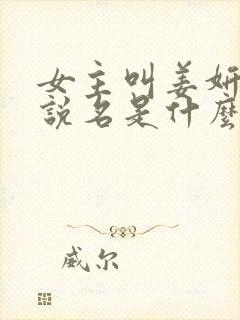 女主叫姜妍
説名是什麽
威尔